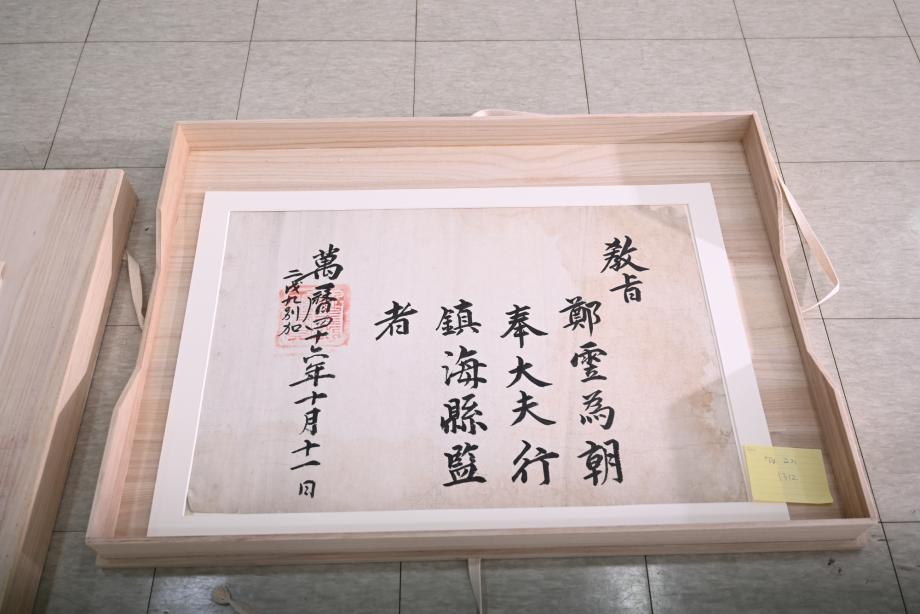 教旨
鄭雲爲朝
奉大夫行
鎮海縣監
者
萬曆四十六年十月十一日
二戌九別加